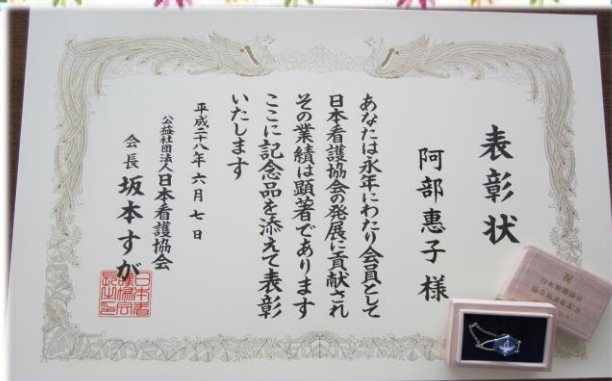 表彰状
阿部惠子様
あなたは永年にわたり会員として
日本看護協会の発展に貢献され
その業績は顕著であります
ここに記念品を添えて表彰
いたします
平成二十八年六月七日
公益社団法人日本看護協会
会長 坂本すが
祝